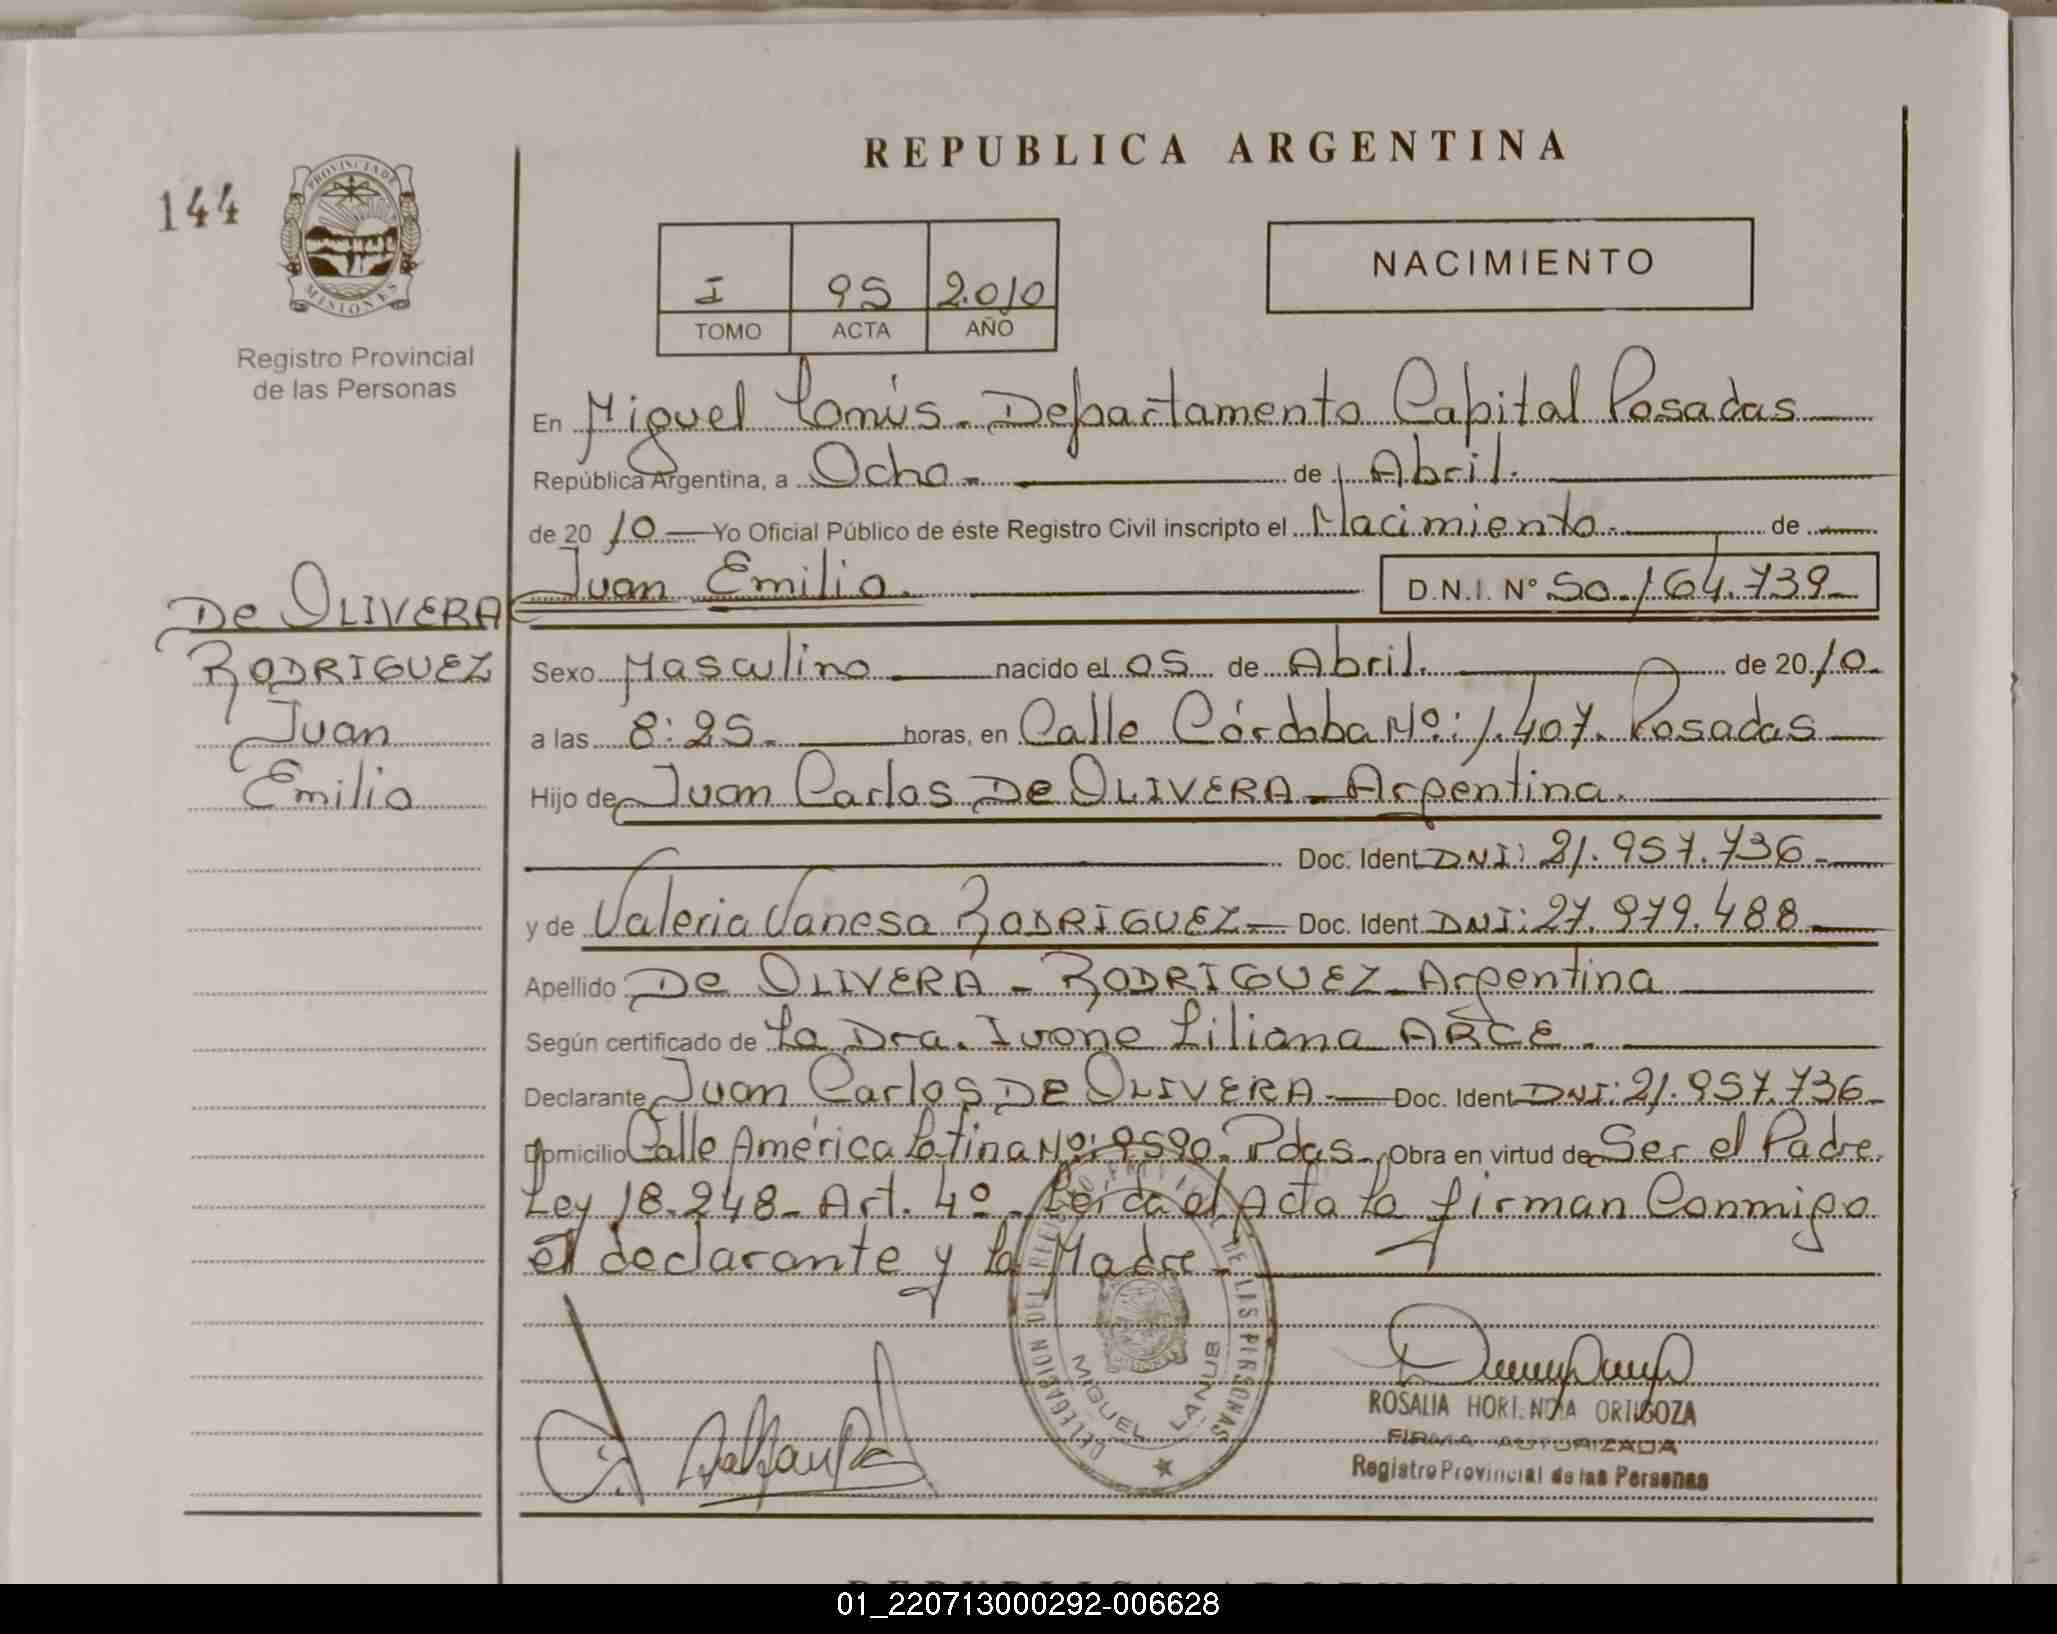 REPUBLICA ARGENTINA
144
PROVINCIA DE
MISIONES
Registro Provincial
de las Personas
I 95 2.010
TOMO ACTA AÑO
NACIMIENTO
En Miguel Lanús. Departamento Capital Posadas
República Argentina, a Ocho. de Abril.
de 20 10 Yo Oficial Público de éste Registro Civil inscripto el Nacimiento. de
Juan Emilio. D.N.I. N° 50.164.739
DE OLIVERA
RODRIGUEZ
Juan
Emilio
Sexo Masculino nacido el 05 de Abril. de 20 10.
a las 8:25. horas, en Calle Córdoba Nº: 1.407. Posadas
Hijo de Juan Carlos DE OLIVERA - Argentina.
Doc. Ident. DNI: 21.957.736
y de Valeria Vanesa RODRIGUEZ - Doc. Ident. DNI: 27.979.488
Apellido DE OLIVERA - RODRIGUEZ - Argentina
Según certificado de La Dra. Ivone Liliana ARCE.
Declarante Juan Carlos DE OLIVERA - Doc. Ident. DNI: 21.957.736
Domicilio Calle América Latina Nº: 9590. Pdas. Obra en virtud de Ser el Padre
Ley 18.248 - Art. 4º - Leída el Acta la firman Conmigo
el declarante y la Madre -
DELEGACION DEL REGISTRO PROVINCIAL DE LAS PERSONAS
MIGUEL LANUS
ROSALIA HORTENCIA ORTIGOZA
FIRMA AUTORIZADA
Registro Provincial de las Personas
01_220713000292-006628